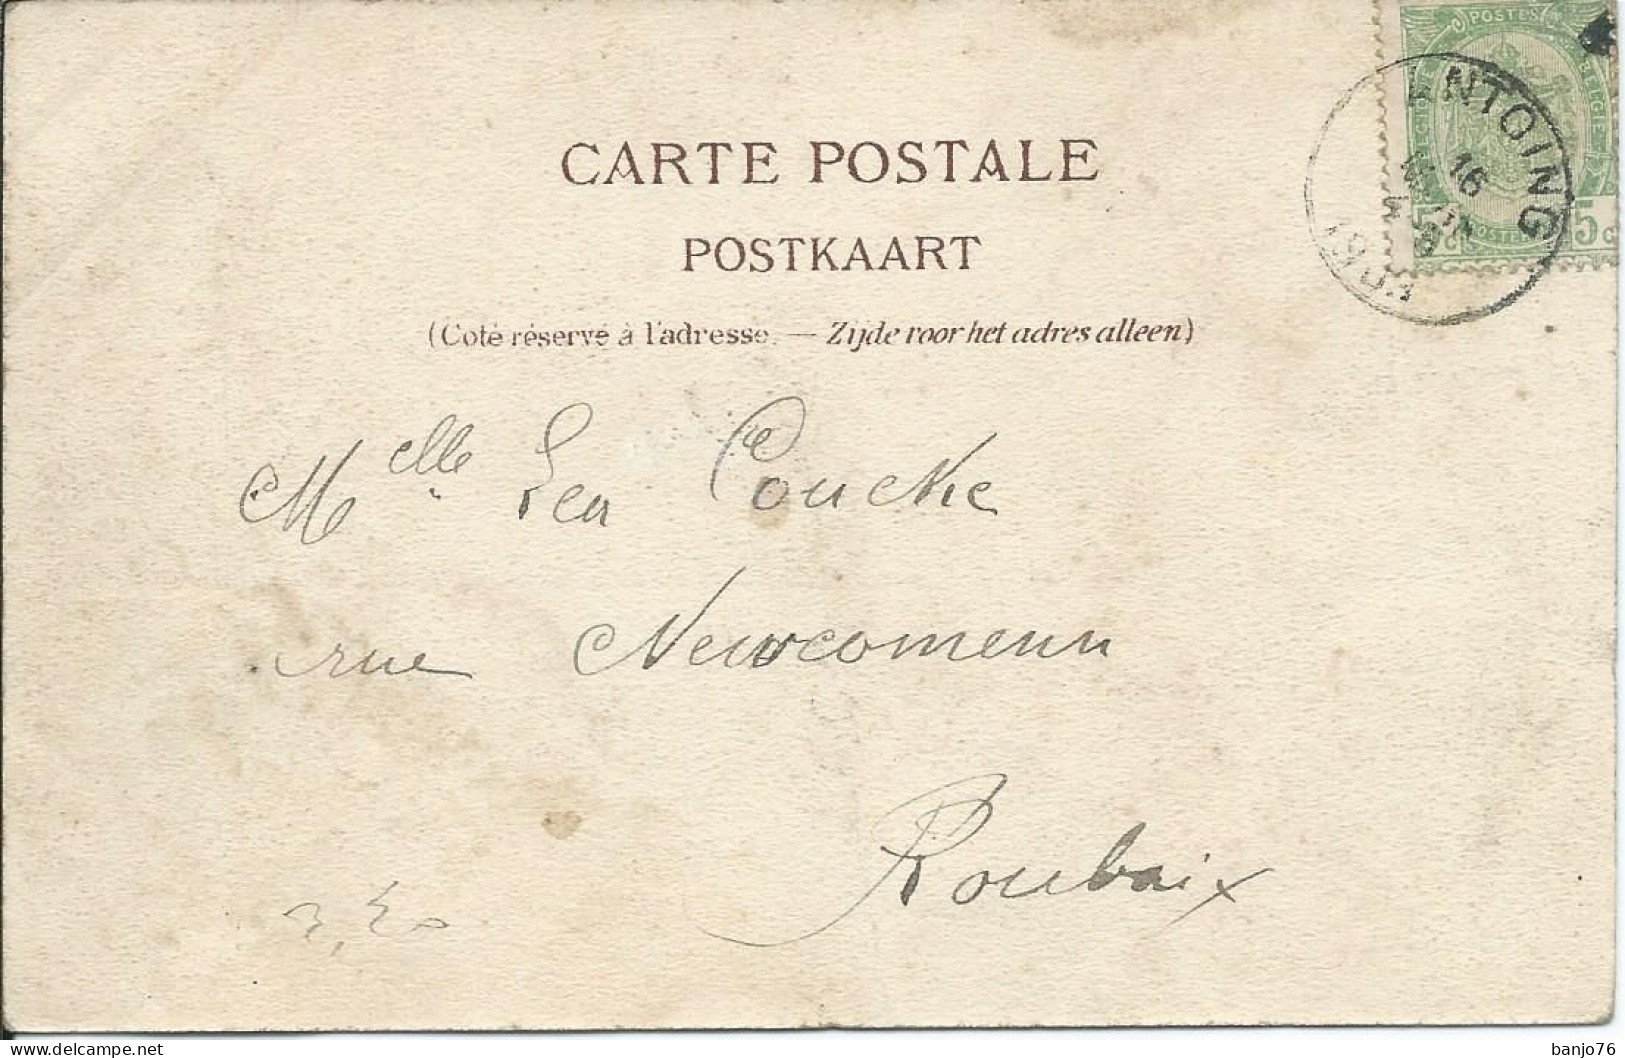 POSTES
CARTE POSTALE
POSTKAART
(Coté réservé à l'adresse. — Zijde voor het adres alleen)
ANTOING
16
1901
POSTERIJEN
5 c
Melle Léa Coucke
rue Newcomenn
Roubaix
delcampe.net
banjo76